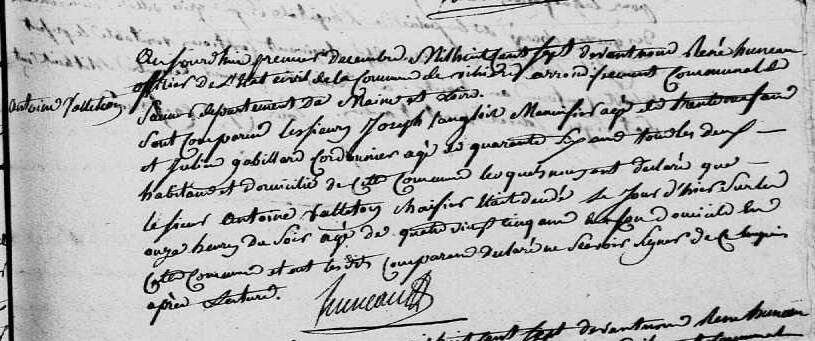 Aujourdhuy premier decembre Mil huit cent sept devant nous René huneau
officier de L'Etat civil de la Commune de arrondissement Communal de
Antoine Valleton
Saumur departement de Maine et Loire.
Sont comparu les sieurs Joseph Langlois Menuisier agé de trente neuf ans
et Julien gabillard Cordonnier agé de quarante six ans tous les deux
habitant et domicilié de Cette Commune lesquels nous ont declaré que
le sieur Antoine Valleton Chaisier est decedé le Jour d'hier sur les
onze heures du soir agé de quatre vingt cinq ans en son domicile en
Cette Commune et ont les dits Comparans declaré ne Scavoir Signer de Ce requis
après Lecture.
huneau
huit cent sept devant nous René huneau